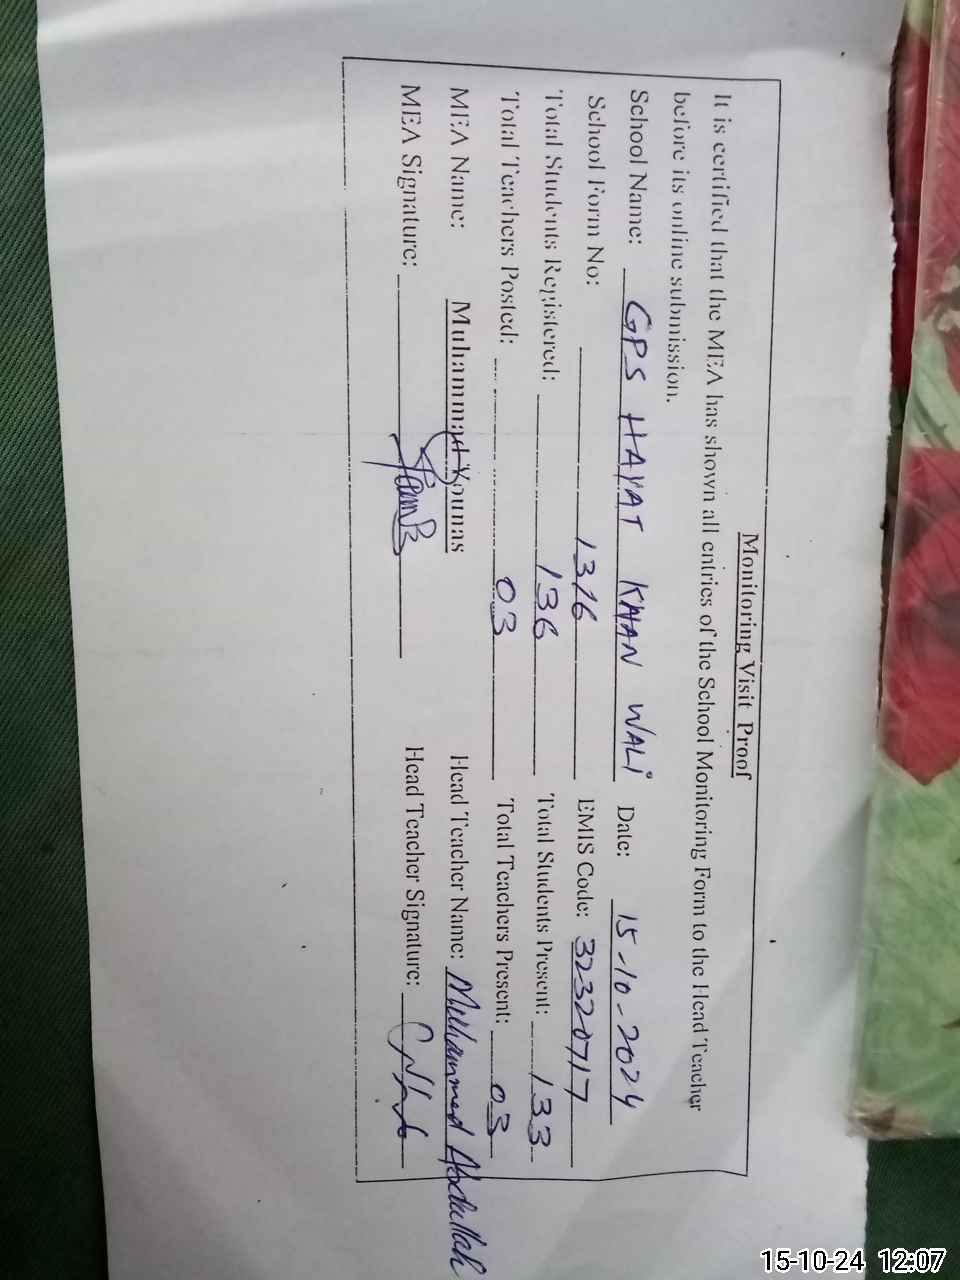 Monitoring Visit Proof
It is certified that the MEA has shown all entries of the School Monitoring Form to the Head Teacher
before its online submission.
School Name: GPS HAYAT KHAN WALI Date: 15-10-2024
School Form No: 1316 EMIS Code: 32320717
Total Students Registered: 136 Total Students Present: 133
Total Teachers Posted: 03 Total Teachers Present: 03
MEA Name: Muhammad Younas Head Teacher Name: Muhammed Abdullah
MEA Signature: Head Teacher Signature:
15-10-24 12:07